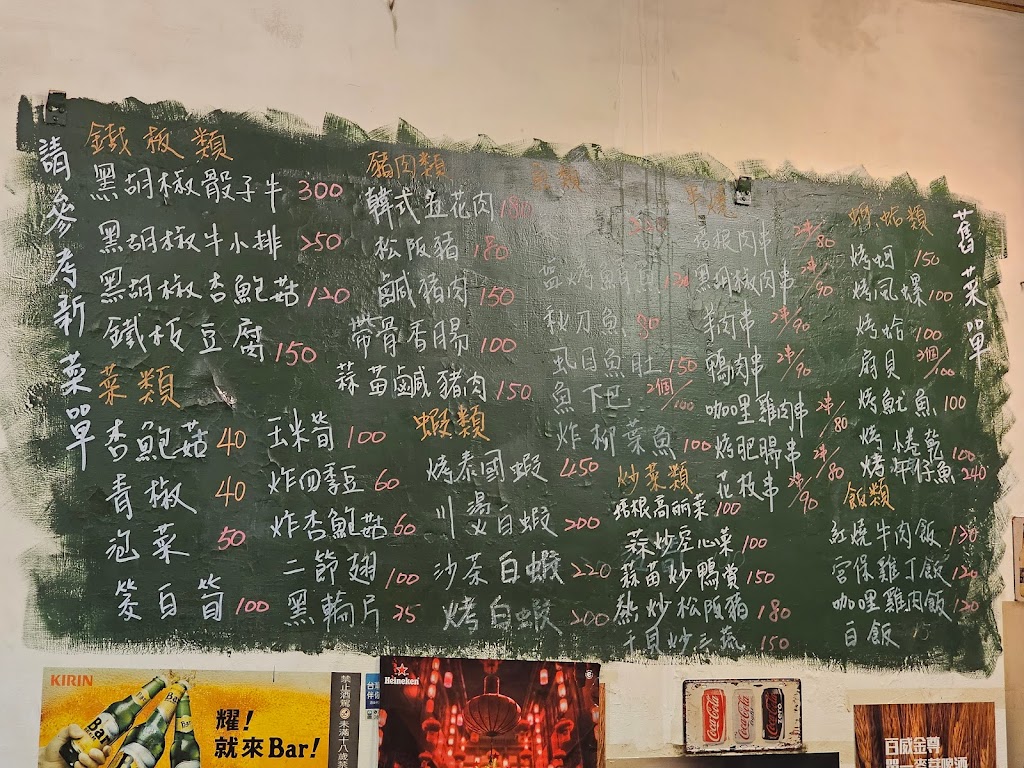 請參考新菜單
鐵板類
黑胡椒骰子牛 300
黑胡椒牛小排 250
黑胡椒杏鮑菇 120
鐵板豆腐 150
菜類
杏鮑菇 40
青椒 40
泡菜 50
筊白筍 100
玉米筍 100
炸四季豆 60
炸杏鮑菇 60
二節翅 100
黑輪片 35
豬肉類
韓式五花肉 180
松阪豬 180
鹹豬肉 150
帶骨香腸 100
蒜苗鹹豬肉 150
蝦類
烤泰國蝦 450
川燙白蝦 200
沙茶白蝦 220
烤白蝦 200
魚類
220
鹽烤鯛魚 130
秋刀魚 80
虱目魚肚 150
魚下巴 2個/100
炸柳葉魚 100
炒菜類
培根高丽菜 100
蒜炒空心菜 100
蒜苗炒鴨賞 150
熱炒松阪豬 180
干貝炒三蔬 150
串燒
培根肉串 2串/80
黑胡椒肉串 2串/90
羊肉串 2串/90
鴨肉串 2串/90
咖哩雞肉串 2串/80
烤肥腸串 2串/80
花枝串 2串/90
蜆蛤類
烤蚵 150
烤風螺 100
烤蛤 100
扇貝 2個/100
烤魷魚 100
烤 捲乾 100
烤午仔魚 240
飯類
紅燒牛肉飯 130
宮保雞丁飯 120
咖哩雞肉飯 120
白飯 15
舊菜單
KIRIN
Bar
耀！
就來Bar!
禁止酒駕
未滿十八歲禁
Heineken
Coca-Cola
Coca-Cola
Coca-Cola
zero
百威金尊
單一麥芽啤酒